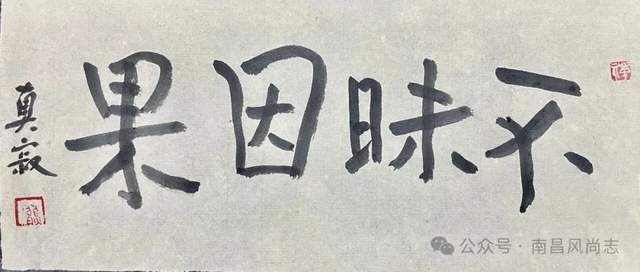 不昧因果
真寂
公众号·南昌风尚志